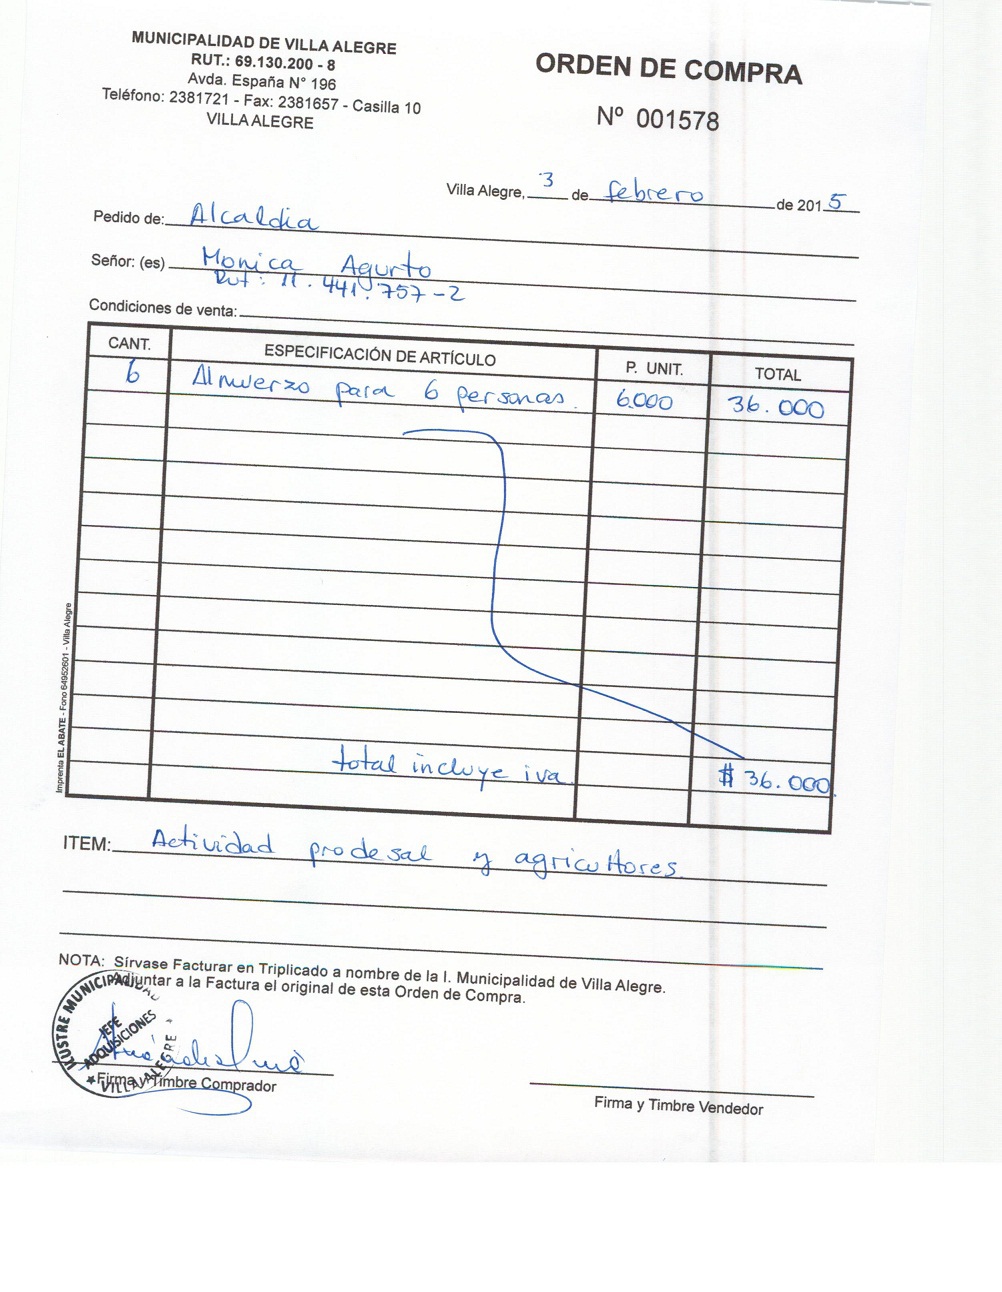 MUNICIPALIDAD DE VILLA ALEGRE
RUT.: 69.130.200 - 8
Avda. España N° 196
Teléfono: 2381721 - Fax: 2381657 - Casilla 10
VILLA ALEGRE
ORDEN DE COMPRA
Nº 001578
Villa Alegre, 3 de febrero de 2015
Pedido de: Alcaldia
Señor: (es) Monica Agurto
Rut: 11.441.757-2
Condiciones de venta:
CANT. ESPECIFICACIÓN DE ARTÍCULO P. UNIT. TOTAL
6 Almuerzo para 6 personas. 6.000 36.000
total incluye iva $ 36.000
Imprenta EL ABATE - Fono 64952601 - Villa Alegre
ITEM: Actividad prodesal y agricultores
NOTA: Sírvase Facturar en Triplicado a nombre de la I. Municipalidad de Villa Alegre.
Adjuntar a la Factura el original de esta Orden de Compra.
ILUSTRE MUNICIPALIDAD
JEFE
ADQUISICIONES
VILLA ALEGRE
Firma y Timbre Comprador
Firma y Timbre Vendedor